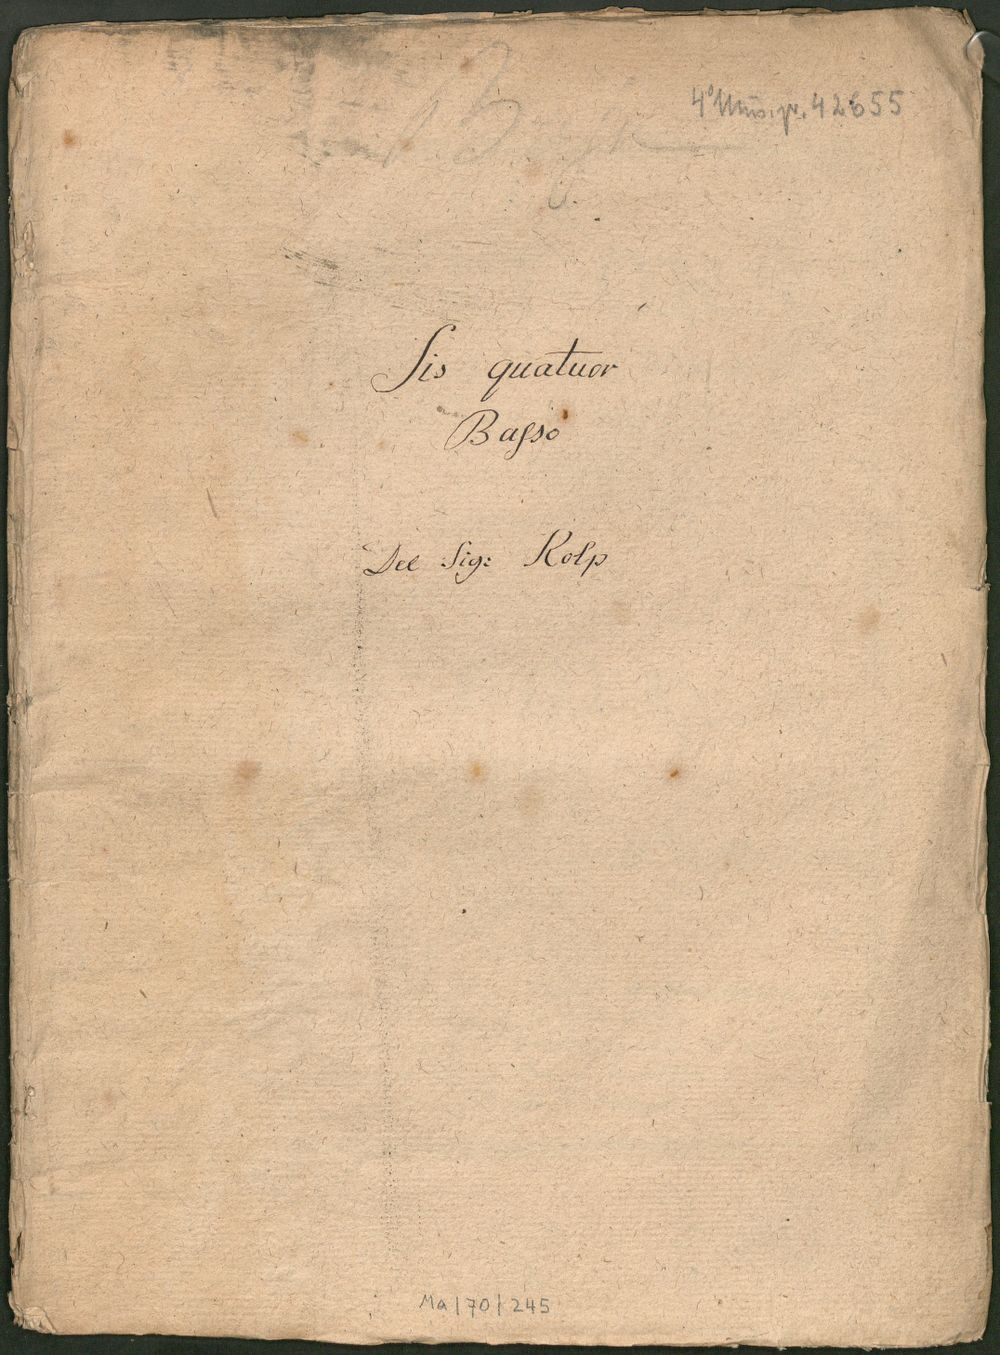 4° Mus. pr. 42655
Sis quatuor
Baſso
Del Sig: Kolp
Ma/70/245